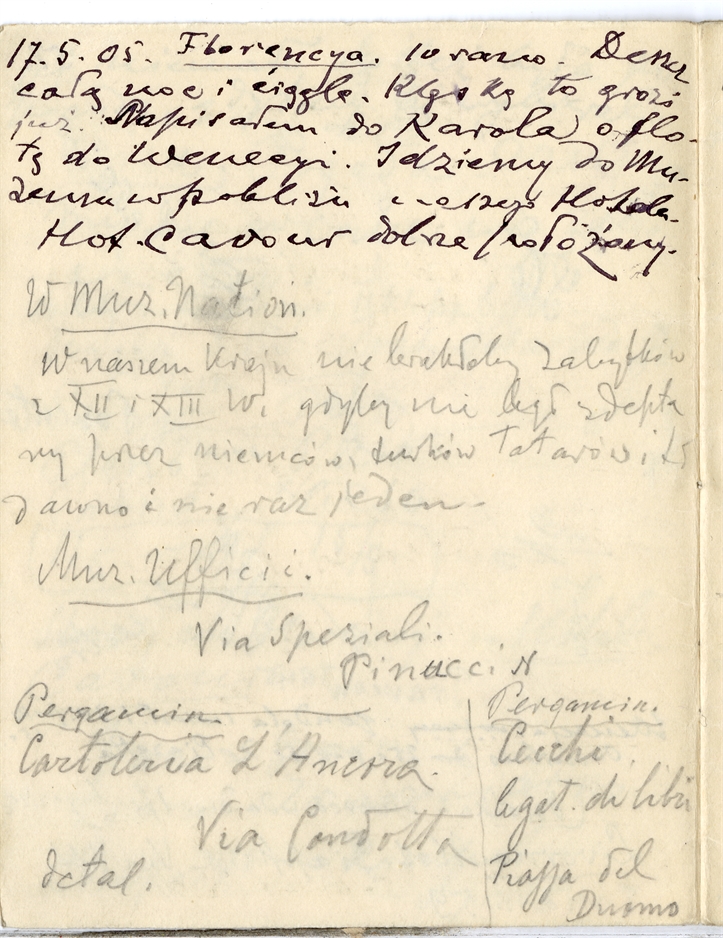 17.5.05. Florencya. 10 rano. Deszcz
całą noc i ciągle. Klęską to grozi
już. Napisałem do Karola o flo-
tę do Wenecyi. Idziemy do Mu-
zeum w pobliżu naszego Hotelu.
Hot. Cavour dobrze położony.
W Muz. Nation.
W naszem kraju nie brakłoby zabytków
z XII i XIII w. gdyby nie był zdepta
ny przez niemców, turków tatarów i t
dawno i nie raz jeden.
Muz. Ufficii.
Via Speziali.
Pinucci
Pergamin.
Cartoleria L'Ancora.
Via Condotta
detal.
Pergamin.
Cecchi
legat. di libri
Piazza del
Duomo